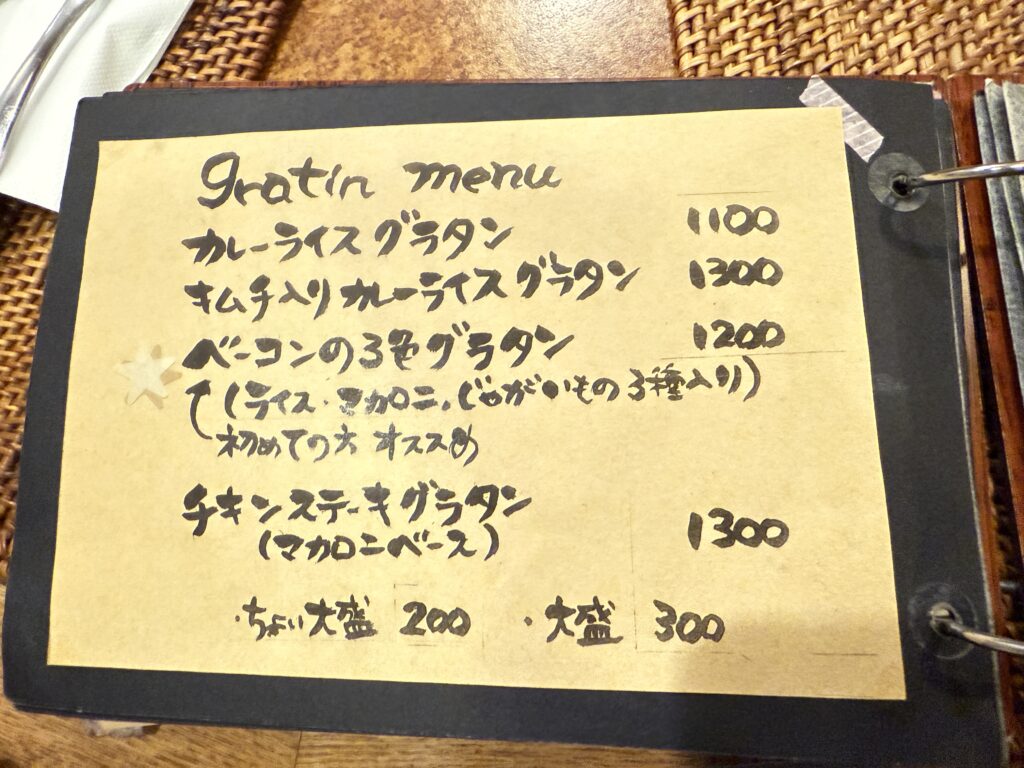 gratin menu
カレーライスグラタン 1100
キムチ入りカレーライスグラタン 1300
ベーコンの3色グラタン 1200
(ライス・マカロニ、じゃがいもの3種入り)
初めての方 オススメ
チキンステーキグラタン
(マカロニベース) 1300
・ちょい大盛 200 ・大盛 300